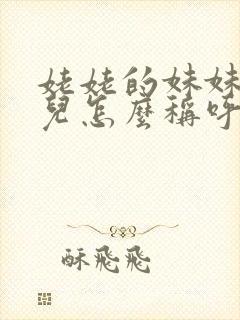 姥姥的妹妹
兒怎麼稱呼
酥飛飛